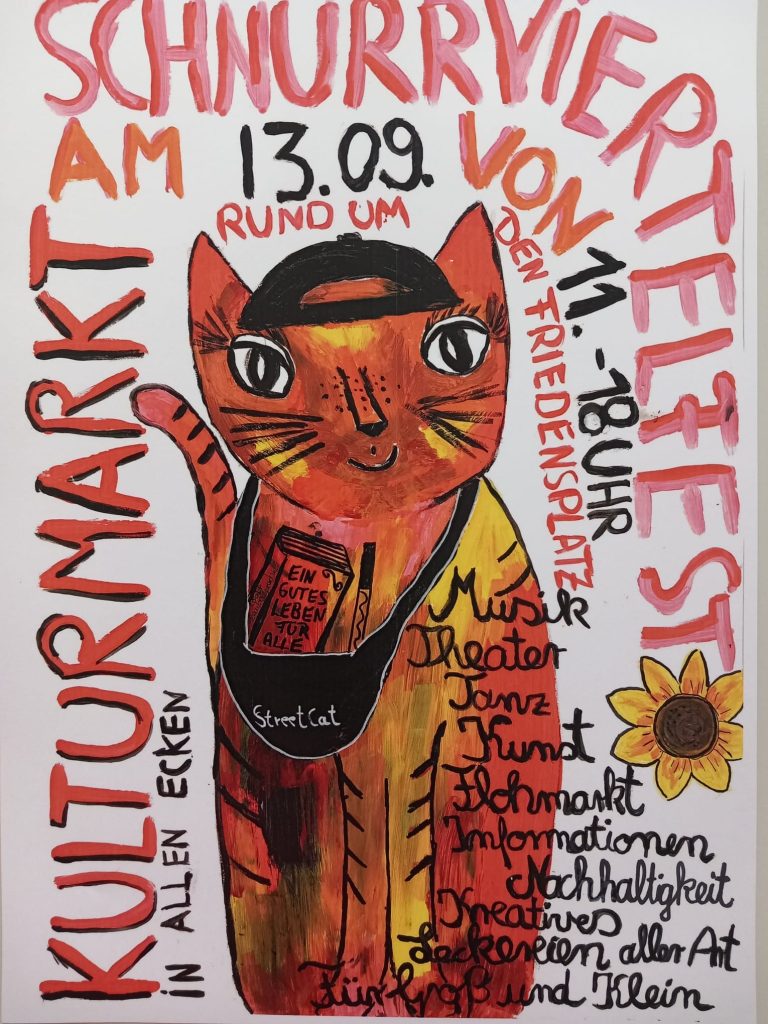 SCHNURRVIERTELFEST
AM 13.09. VON 11.-18 UHR
RUND UM DEN FRIEDENSPLATZ
KULTURMARKT
IN ALLEN ECKEN
EIN
GUTES
LEBEN
FÜR
ALLE
StreetCat
Musik
Theater
Tanz
Kunst
Flohmarkt
Informationen
Nachhaltigkeit
Kreatives
Leckereien aller Art
Für Groß und Klein